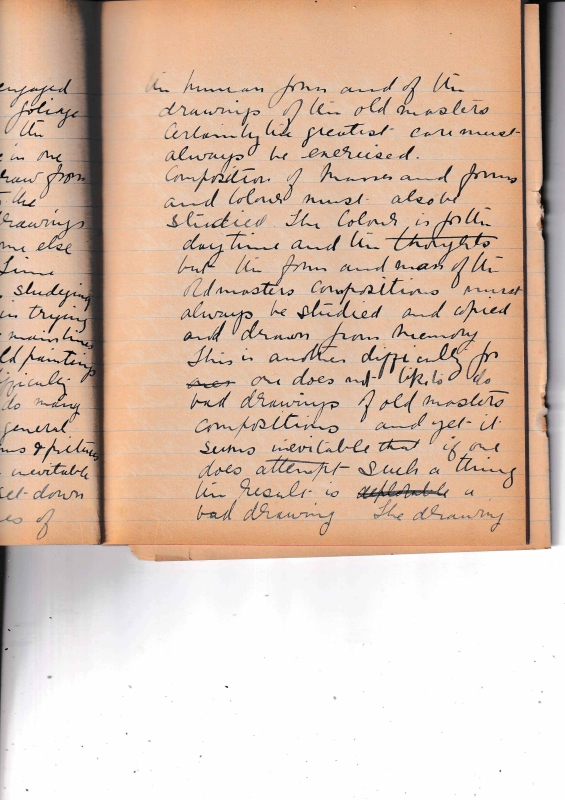 engaged
foliage
the
e in one
raw from
the
rawings
me else
Time
studying
in trying
main lines
ld paintings
fficulty
do many
general
ms & pictures
inevitable
set down
es of
the human form and of the
drawings of the old masters
Certainly the greatest care must
always be exercised.
Composition of Masses and forms
and Colour must also be
studied. The Colour is for the
day time and the thoughts
but the form and mass of the
old masters compositions must
always be studied and copied
and drawn from memory
This is another difficulty for
one does not like to do
bad drawings of old masters
compositions and yet it
seems inevitable that if one
does attempt such a thing
the result is deplorable a
bad drawing The drawing